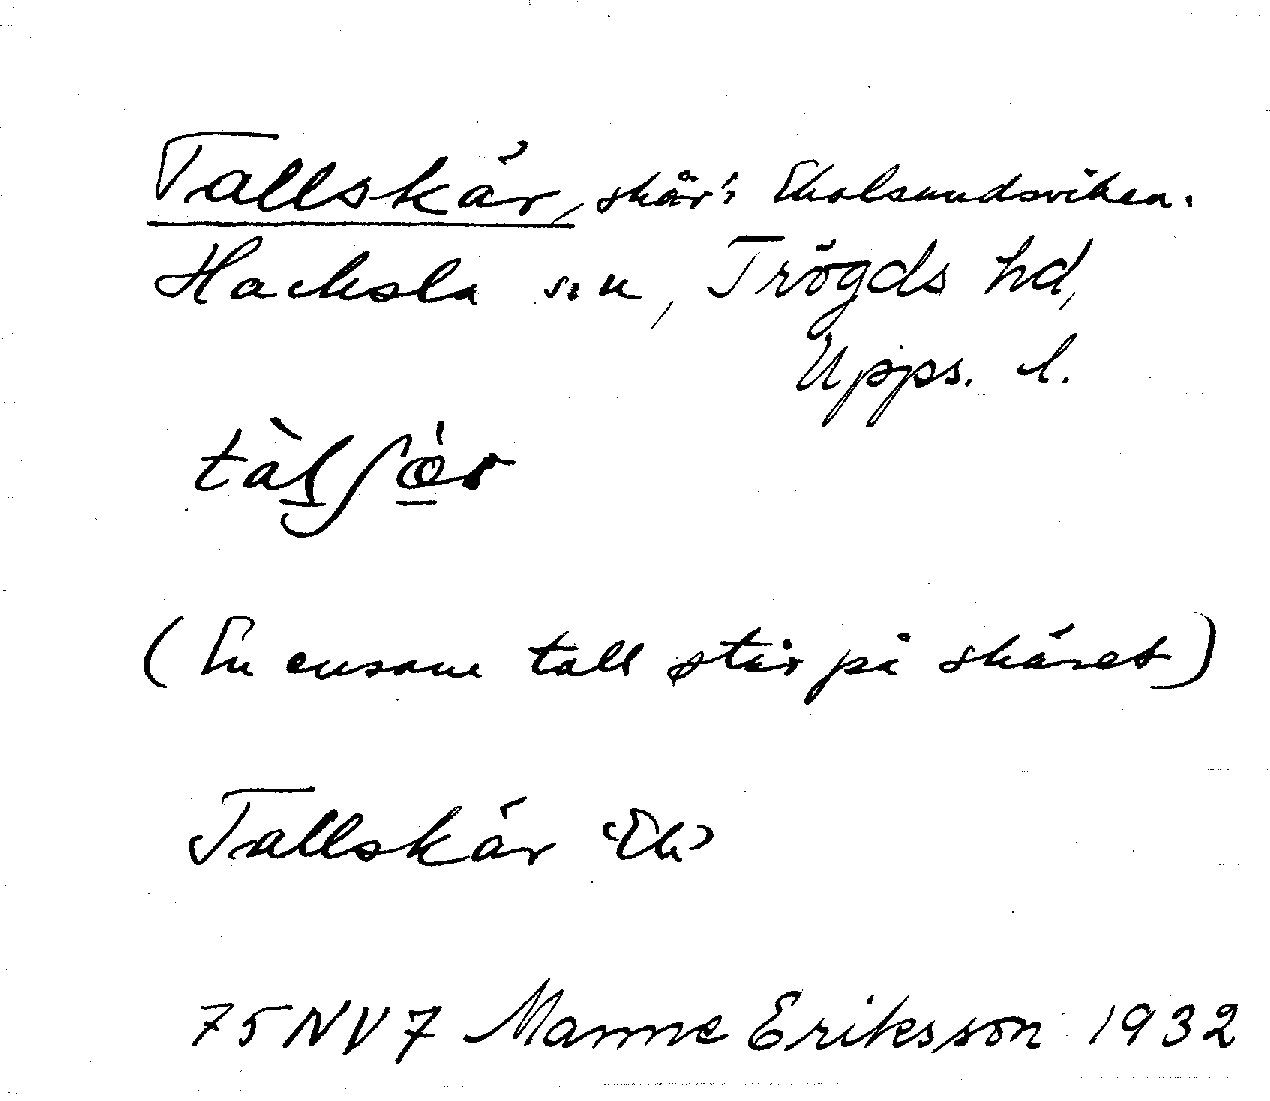 Tallskär, skär i Ekolsundsviken.
Hacksta sn, Trögds hd,
Upps. l.
(En ensam tall står på skäret)
Tallskär Ek
75NV7 Manne Eriksson 1932